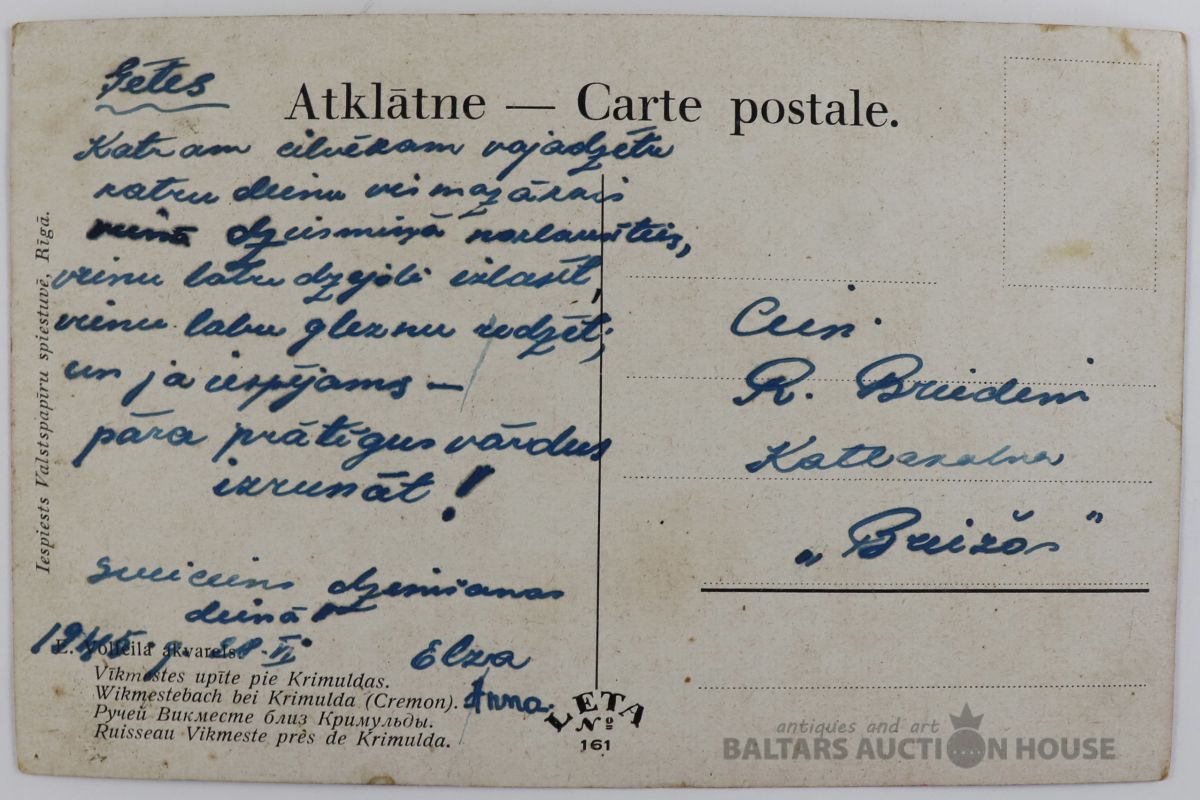 Gētes
Atklātne — Carte postale.
Katram cilvēkam vajadzētu
katru dienu vismazākais
vienā dziesmiņā noklausīties,
vienu labu dzejoli izlasīt,
vienu labu gleznu redzēt;
un ja iespējams —
pāra prātīgus vārdus
izrunāt!
Sveiciens dzimšanas
dienā
1945 g. VI
Elza
Anna.
Iespiests Valstspapīru spiestuvē, Rīgā.
E. Volfeila akvarelis.
Vīkmestes upīte pie Krimuldas.
Wikmestebach bei Krimulda (Cremon).
Ручей Викместе близ Кримульды.
Ruisseau Vikmeste près de Krimulda.
LETA
№
161
Cien.
R. Briedim
Katlakalna
„Briežos"
antiques and art
BALTARS AUCTION HOUSE